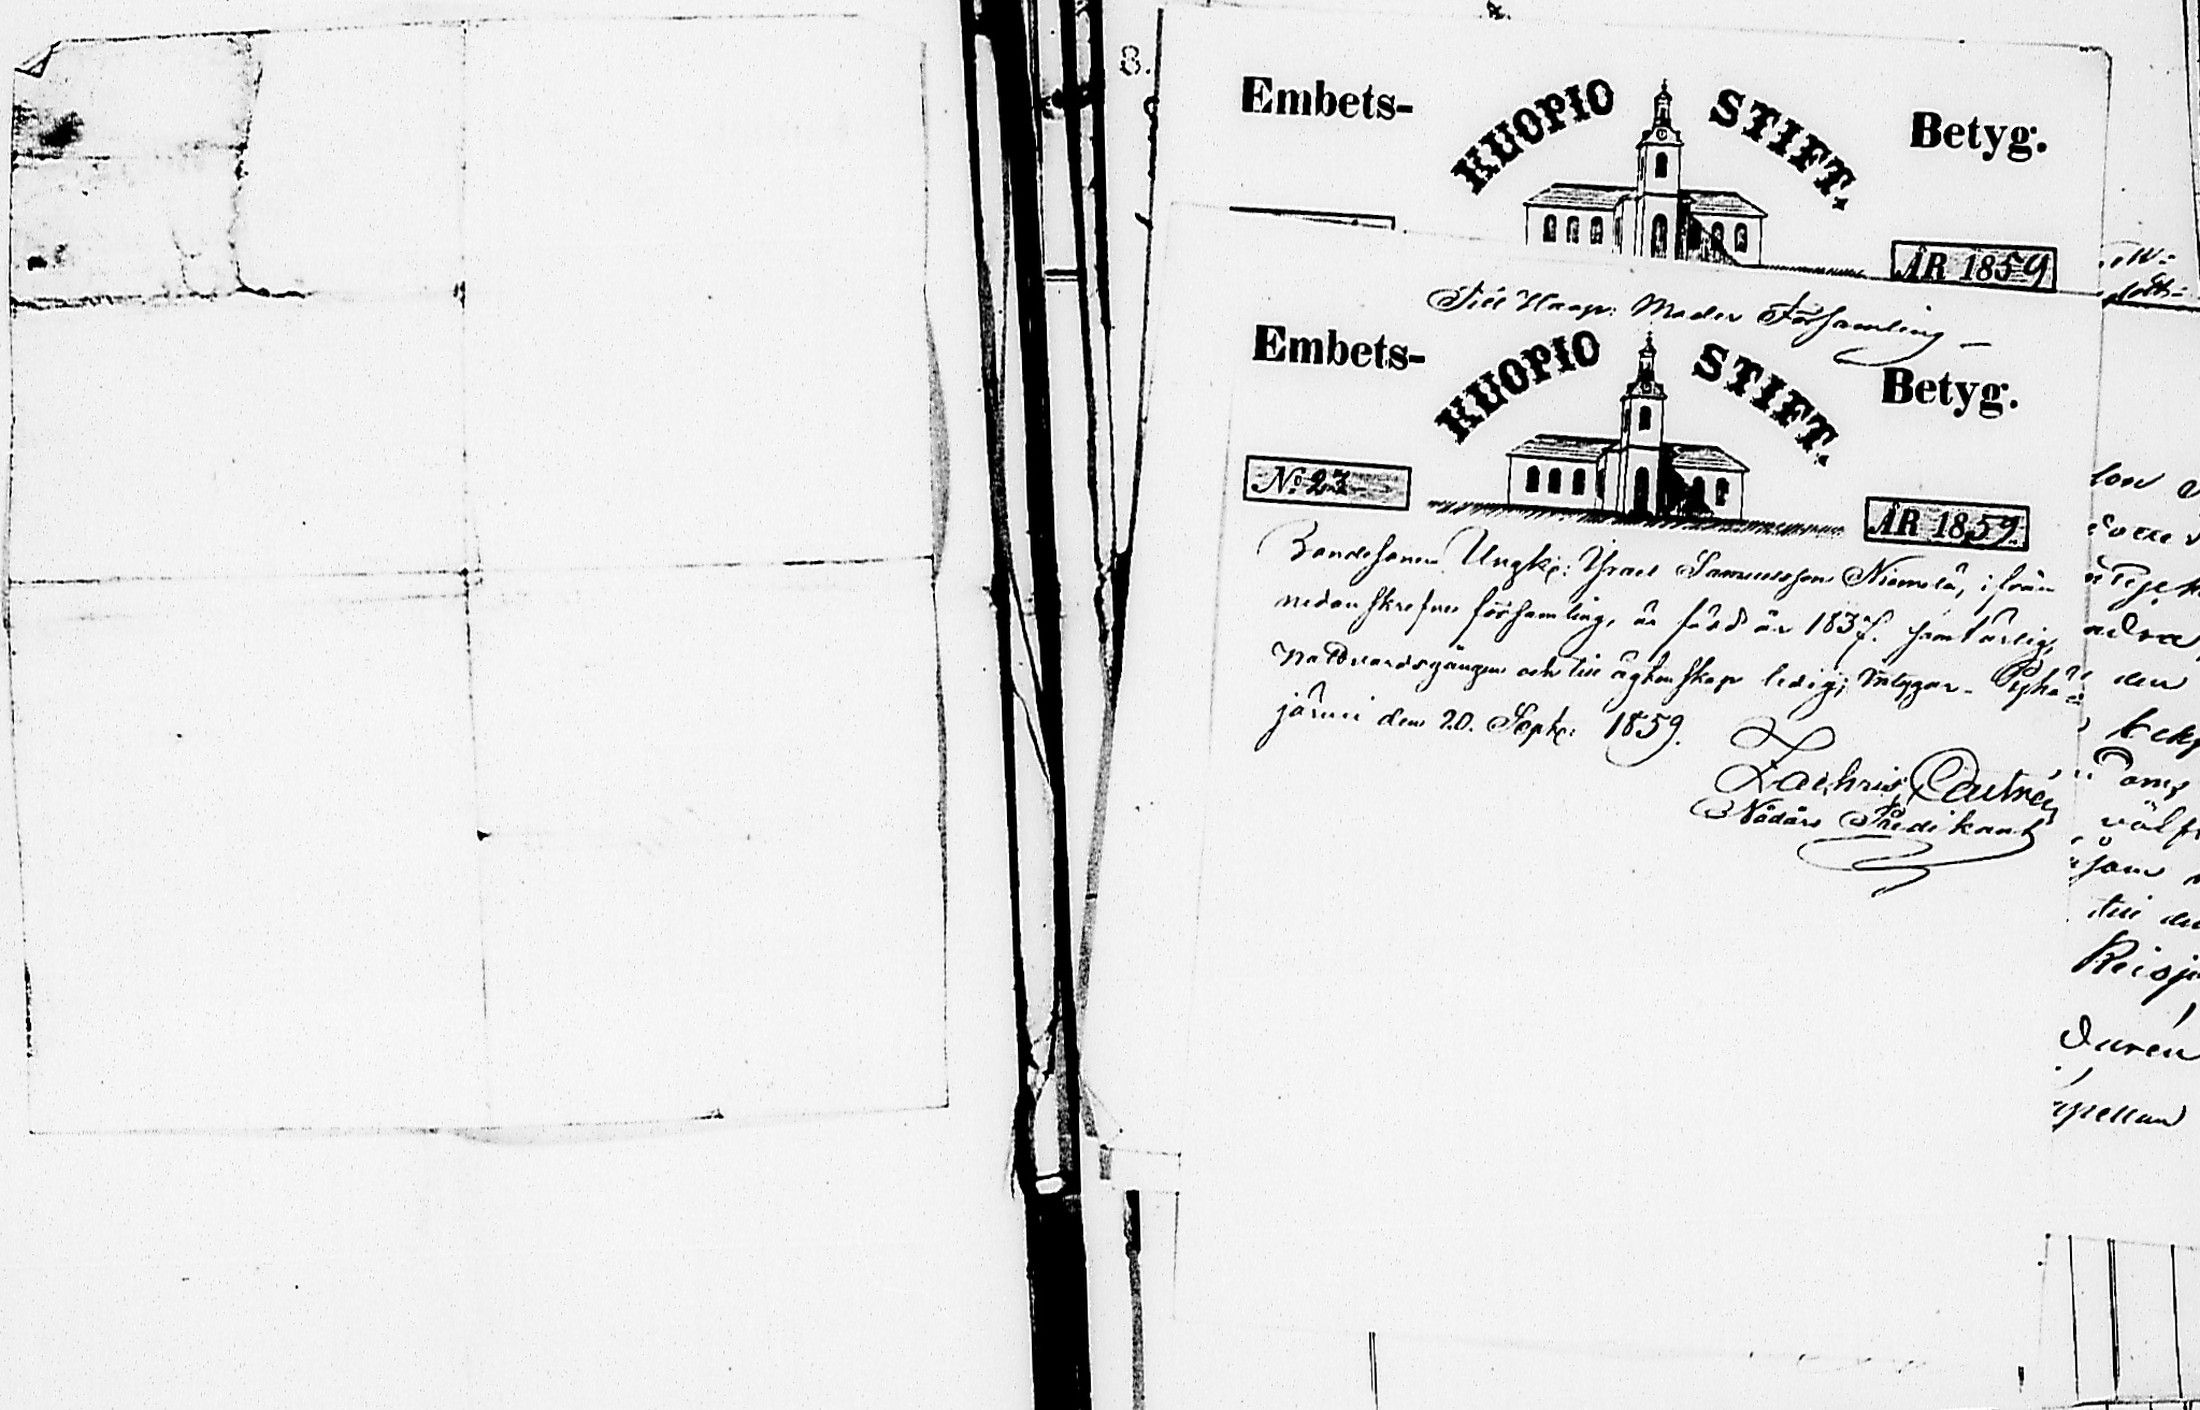 8.
Embets- KUOPIO STIFT. Betyg.
ÅR 1859
Till Haap: Moder Församling
Embets- KUOPIO STIFT. Betyg.
No 27 ÅR 1859
Bondesonen Ungk: Israel Samuelsson Niemelä, ifrån
nedanskrefne församling, är född år 1837. samt ärlig,
nattvardsgången och till ägtenskap ledig; intygar. Pyhä-
järvi den 20. Sept: 1859.
Zachris Castrén
Nådårs Predikant